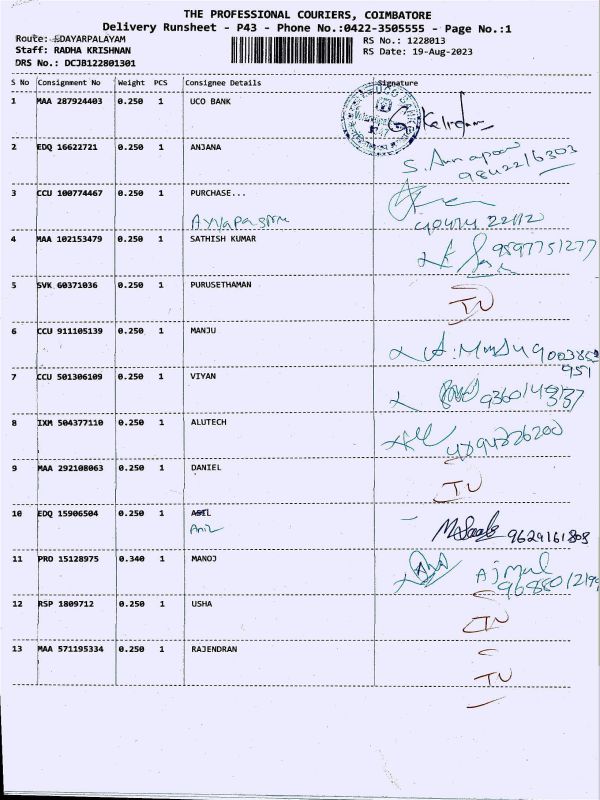 THE PROFESSIONAL COURIERS, COIMBATORE
Delivery Runsheet - P43 - Phone No.:0422-3505555 - Page No.:1
Route: EDAYARPALAYAM RS No.: 1228013
Staff: RADHA KRISHNAN RS Date: 19-Aug-2023
DRS No.: DCJB122801301
S No Consignment No Weight PCS Consignee Details Signature
1 MAA 287924403 0.250 1 UCO BANK
2 EDQ 16622721 0.250 1 ANJANA
9842216303
3 CCU 100774467 0.250 1 PURCHASE...
4 MAA 102153479 0.250 1 SATHISH KUMAR 9597751277
5 SVK 60371036 0.250 1 PURUSETHAMAN
6 CCU 911105139 0.250 1 MANJU
7 CCU 501306109 0.250 1 VIYAN
8 IXM 504377110 0.250 1 ALUTECH
9 MAA 292108063 0.250 1 DANIEL
10 EDQ 15906504 0.250 1 ASIL
Anil 9629161808
11 PRO 15128975 0.340 1 MANOJ
Ajmal
12 RSP 1809712 0.250 1 USHA
13 MAA 571195334 0.250 1 RAJENDRAN